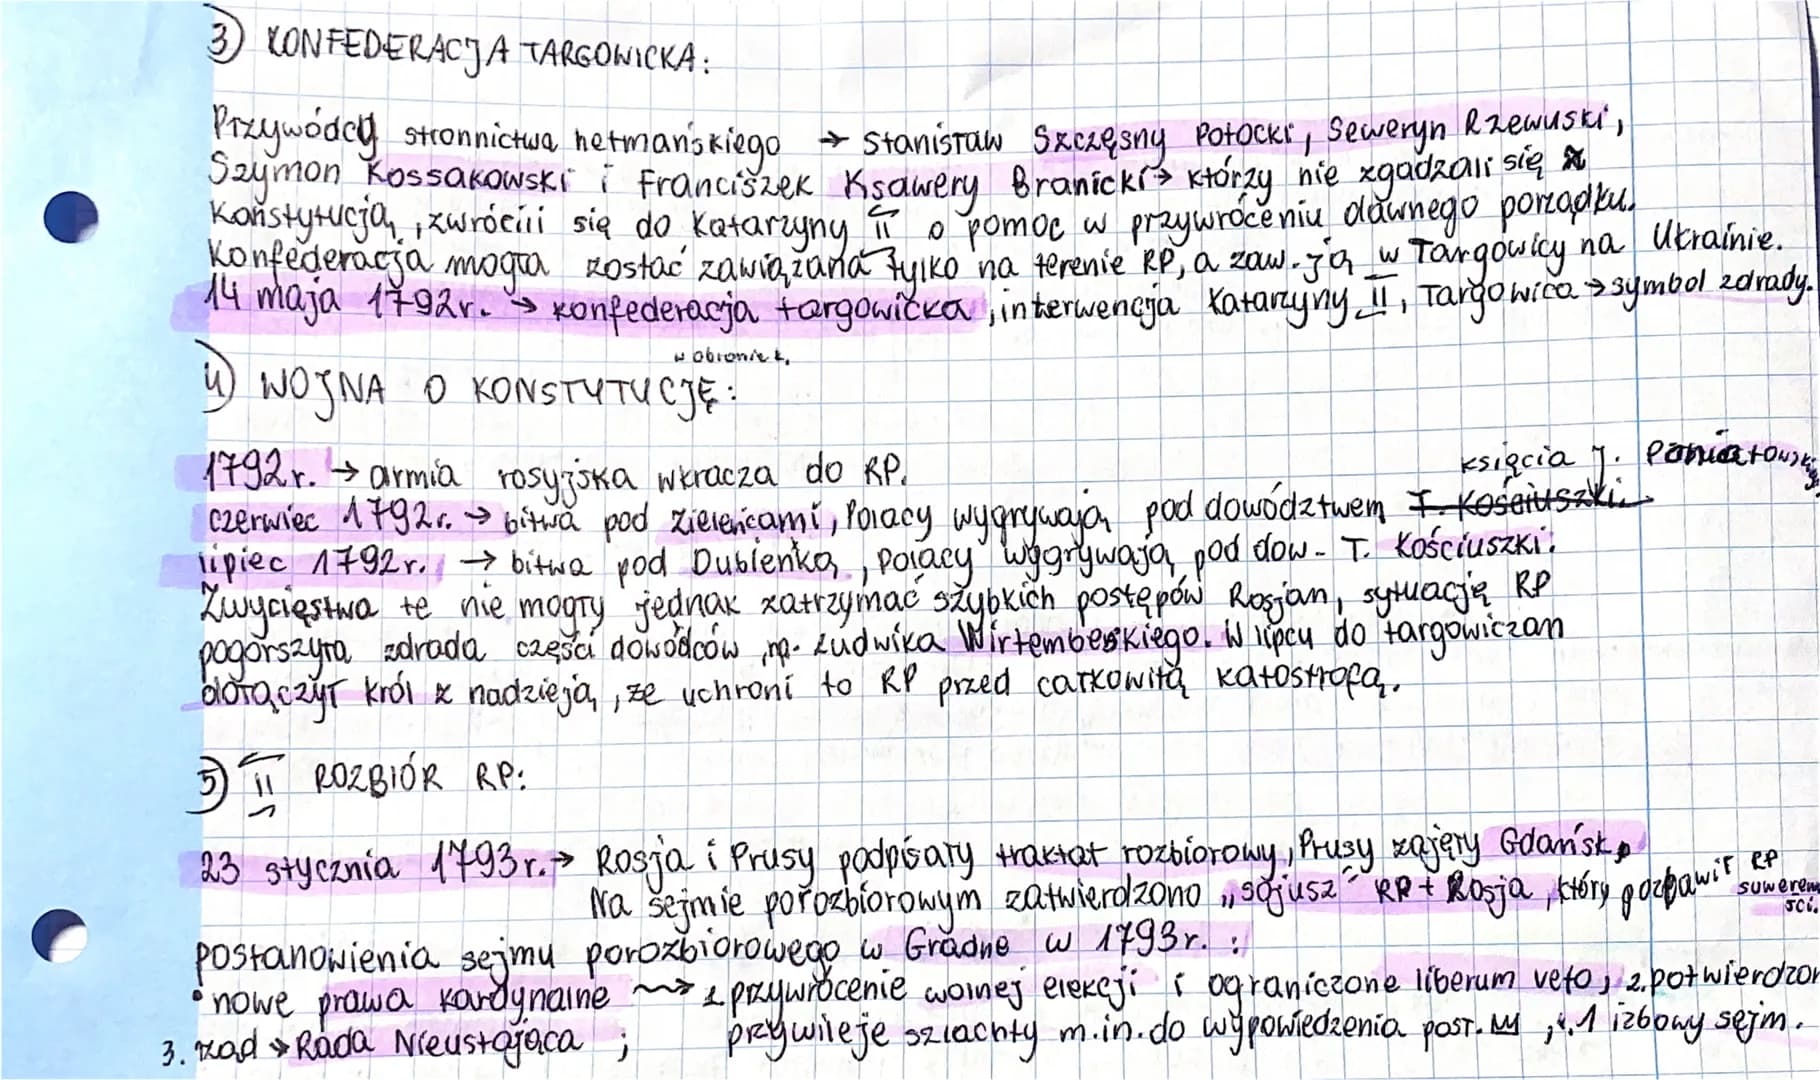 3) KONFEDERACJA TARGOWICKA:
Przywódcy stronnictwa hetmańskiego → Stanisław Szczęsny Potocki, Seweryn Rzewuski,
Szymon Kossakowski i Franciszek Ksawery Branicki → którzy nie zgadzali się z
Konstytucją, zwrócili się do Katarzyny II o pomoc w przywróceniu dawnego porządku.
Konfederacja mogła zostać zawiązana tylko na terenie RP, a zaw. ją w Targowicy na Ukrainie.
14 maja 1792r. → konfederacja targowicka, interwencja Katarzyny II, Targowica → symbol zdrady.
w obronie k.
4) WOJNA O KONSTYTUCJĘ:
1792r. → armia rosyjska wkracza do RP.
księcia J. Poniatowskiego
czerwiec 1792r. → bitwa pod Zieleńcami, Polacy wygrywają pod dowództwem T. Kościuszki
lipiec 1792r. → bitwa pod Dubienką, Polacy wygrywają pod dow. T. Kościuszki.
Zwycięstwa te nie mogły jednak zatrzymać szybkich postępów Rosjan, sytuację RP
pogorszyła zdrada części dowódców, np. Ludwika Wirtemberskiego. W lipcu do targowiczan
dołączył król z nadzieją, że uchroni to RP przed całkowitą katastrofą.
5) II ROZBIÓR RP:
23 stycznia 1793r. → Rosja i Prusy podpisały traktat rozbiorowy, Prusy zajęły Gdańsk,
Na sejmie porozbiorowym zatwierdzono „sojusz" RP + Rosja, który pozbawił RP
suweren
ści.
postanowienia sejmu porozbiorowego w Gradne w 1793r. :
• nowe prawa kardynalne ~> 1 przywrócenie wolnej elekcji i ograniczone liberum veto; 2. potwierdzon
3. rząd → Rada Nieustająca ; przywileje szlachty m.in. do wypowiedzenia posł. , 4. 1 izbowy sejm.